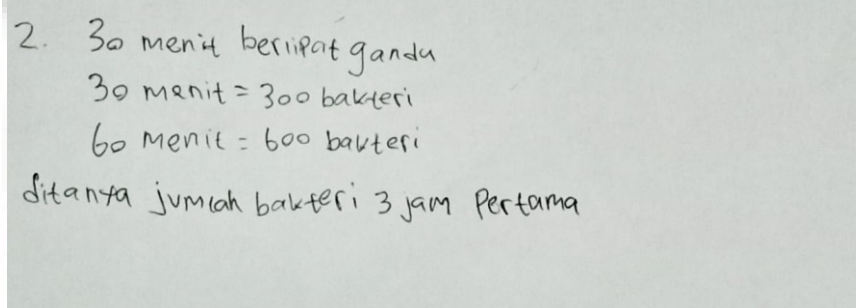 2. 30 menit berlipat ganda
30 menit = 300 bakteri
60 menit = 600 bakteri
ditanya jumlah bakteri 3 jam Pertama